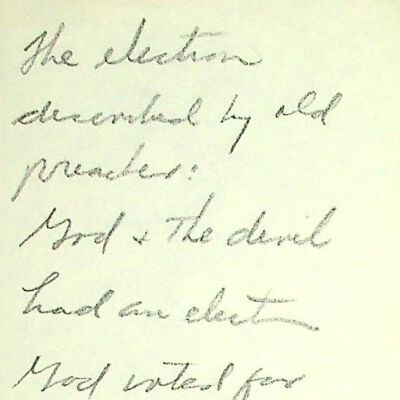 The election
described by old
preacher:
God & the devil
had an election
God voted for